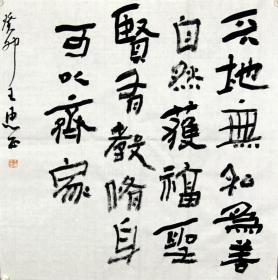 天地無私為善
自然獲福聖
賢有教脩身
可以齊家
癸卯 王忠